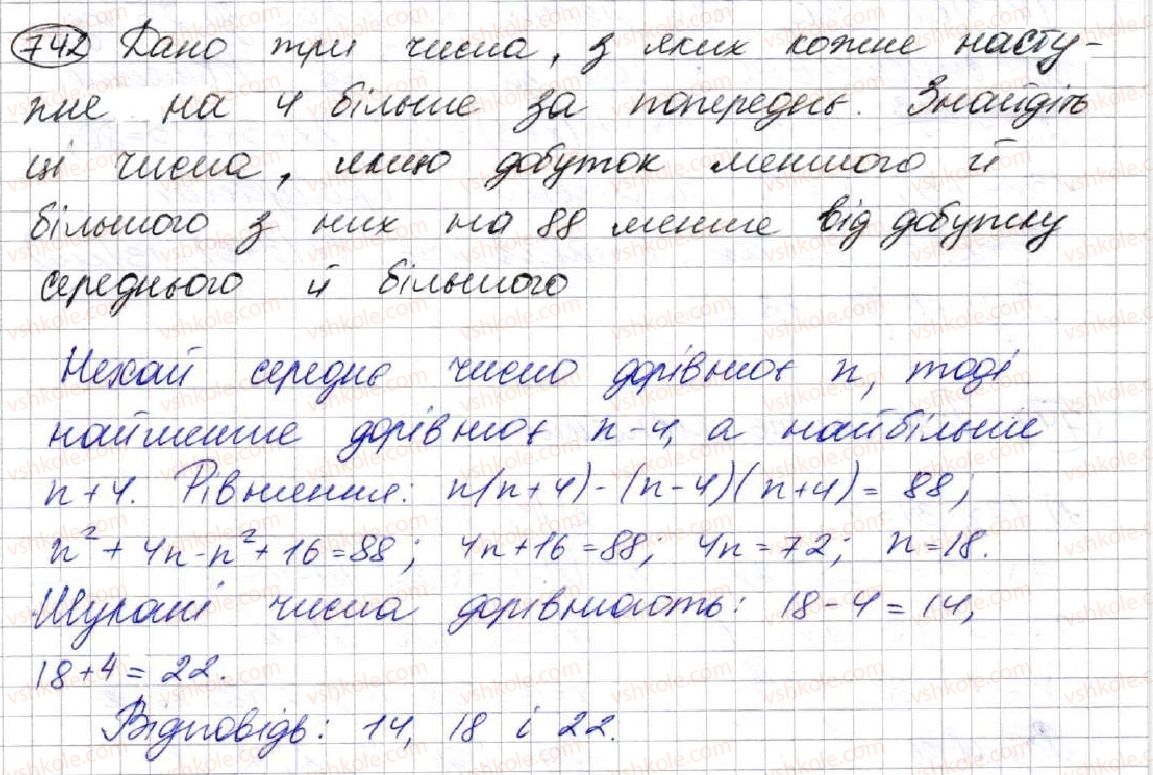 742 Дано три числа, з яких кожне насту-
пне на 4 більше за попереднє. Знайдіть
ці числа, якщо добуток меншого й
більшого з них на 88 менше від добутку
середнього й більшого
Нехай середнє число дорівнює n, тоді
найменше дорівнює n-4, а найбільше
n+4. Рівняння: n(n+4)-(n-4)(n+4)=88;
n²+4n-n²+16=88; 4n+16=88; 4n=72; n=18.
Шукані числа дорівнюють: 18-4=14,
18+4=22.
Відповідь: 14, 18 і 22.